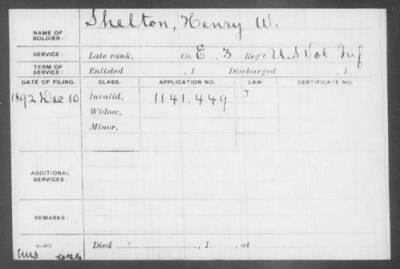 NAME OF SOLDIER: Shelton, Henry W.
SERVICE: Late rank, Co. E, 3 Reg't U.S Vol Inf
TERM OF SERVICE: Enlisted , 1 Discharged , 1
DATE OF FILING. CLASS. APPLICATION NO. LAW CERTIFICATE NO.
1892 Dec 10 Invalid, 1141.449 J
Widow,
Minor,
ADDITIONAL SERVICES:
REMARKS:
Died , 1 , at